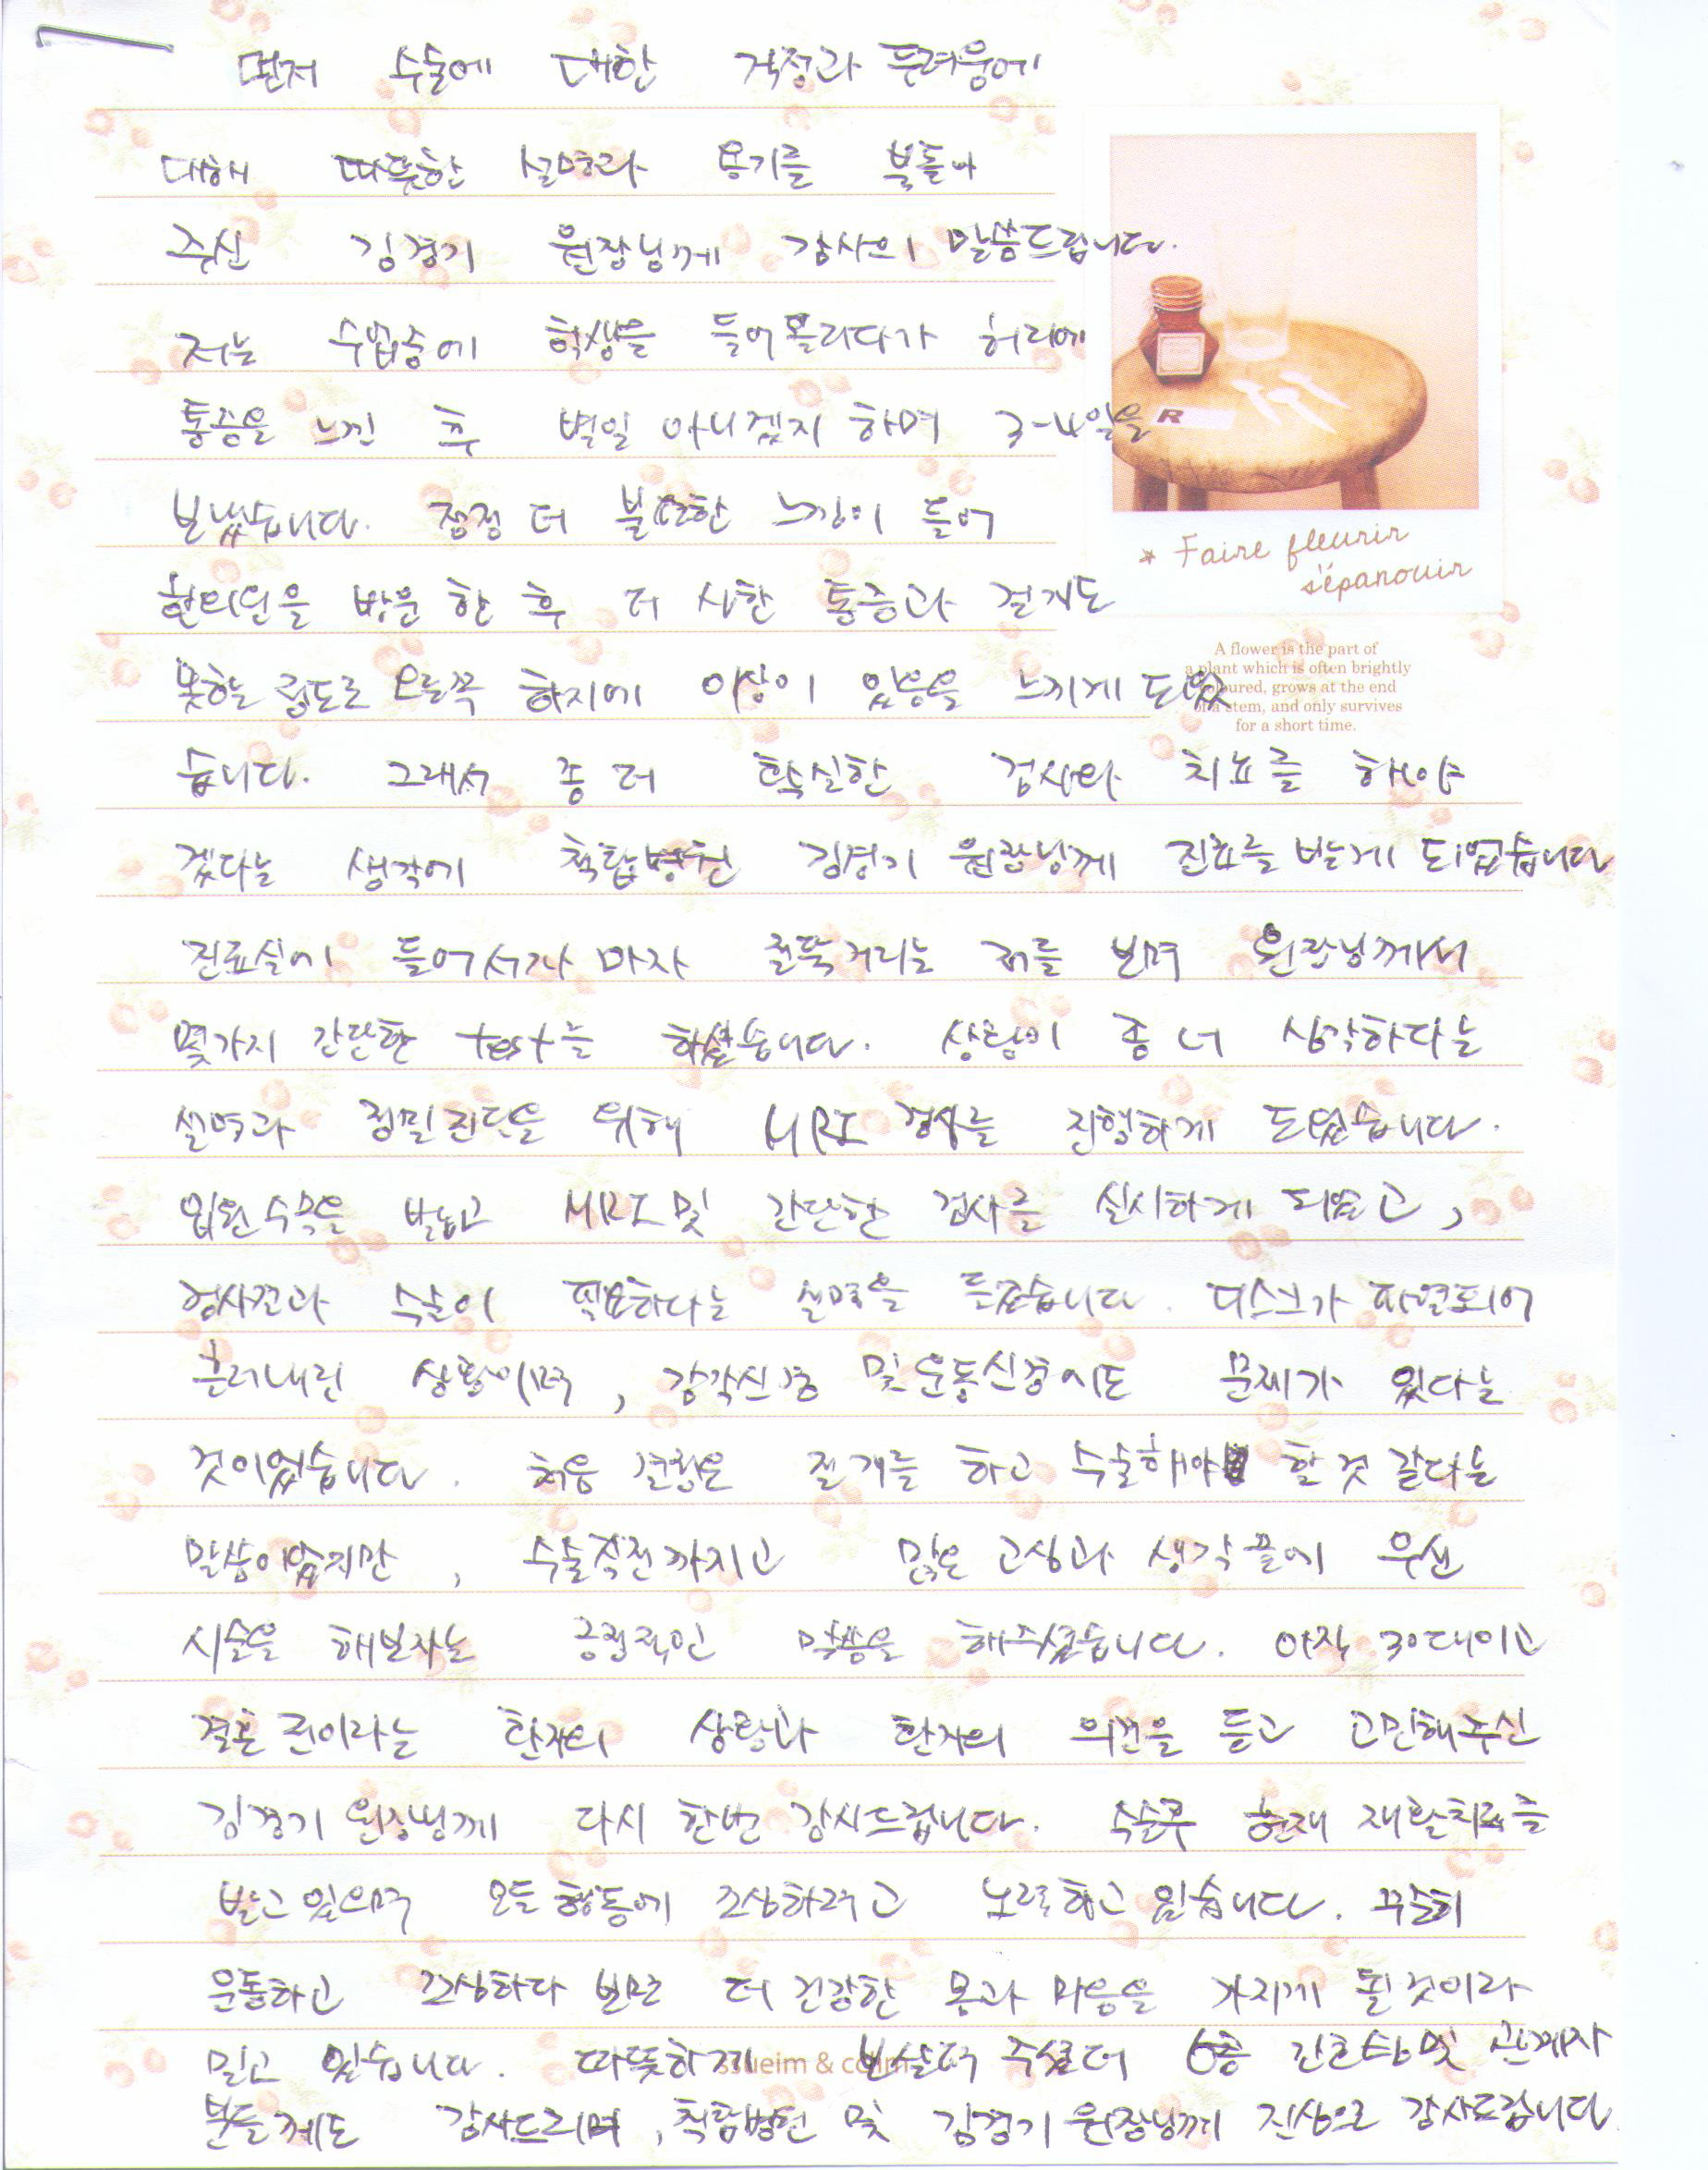 먼저 수술에 대한 걱정과 두려움에
대해 따뜻한 설명과 용기를 북돋아
주신 김경기 원장님께 감사의 말씀드립니다.
저는 수업중에 학생을 들어올리다가 허리에
통증을 느낀 후 별일 아니겠지 하며 3-4일을
보냈습니다. 점점 더 불편한 느낌이 들어
한의원을 방문 한 후 더 심한 통증과 걷기도
못하는 정도로 오른쪽 하지에 이상이 있음을 느끼게 되었
습니다. 그래서 좀 더 확실한 검사와 치료를 해야
겠다는 생각에 척탑병원 김경기 원장님께 진료를 받게 되었습니다
진료실에 들어서자 마자 절뚝거리는 저를 보며 원장님께서
몇가지 간단한 test를 하셨습니다. 상황이 좀 더 심각하다는
설명과 정밀진단을 위해 MRI 검사를 진행하게 되었습니다.
입원수속을 밟고 MRI 및 간단한 검사를 실시하게 되었고,
검사결과 수술이 필요하다는 설명을 들었습니다. 디스크가 파열되어
흘러내린 상황이며, 감각신경 및 운동신경에도 문제가 있다는
것이었습니다. 처음 결정은 절개를 하고 수술해야 할 것 같다는
말씀이었지만, 수술직전까지고 많은 고심과 생각 끝에 우선
시술을 해보자는 긍정적인 말씀을 해주셨습니다. 아직 30대이고
결혼 전이라는 환자의 상황과 환자의 의견을 듣고 고민해주신
김경기 원장님께 다시 한번 감사드립니다. 수술후 현재 재활치료를
받고 있으며 모든 행동에 조심하려고 노력하고 있습니다. 꾸준히
운동하고 조심하다 보면 더 건강한 몸과 마음을 가지게 될것이라
믿고 있습니다. 따뜻하게 보살펴 주셨던 6층 간호사 및 관계자
분들께도 감사드리며, 척탑병원 및 김경기 원장님께 진심으로 감사드립니다.
R
* Faire fleurir
s'épanouir
A flower is the part of
a plant which is often brightly
coloured, grows at the end
of a stem, and only survives
for a short time.